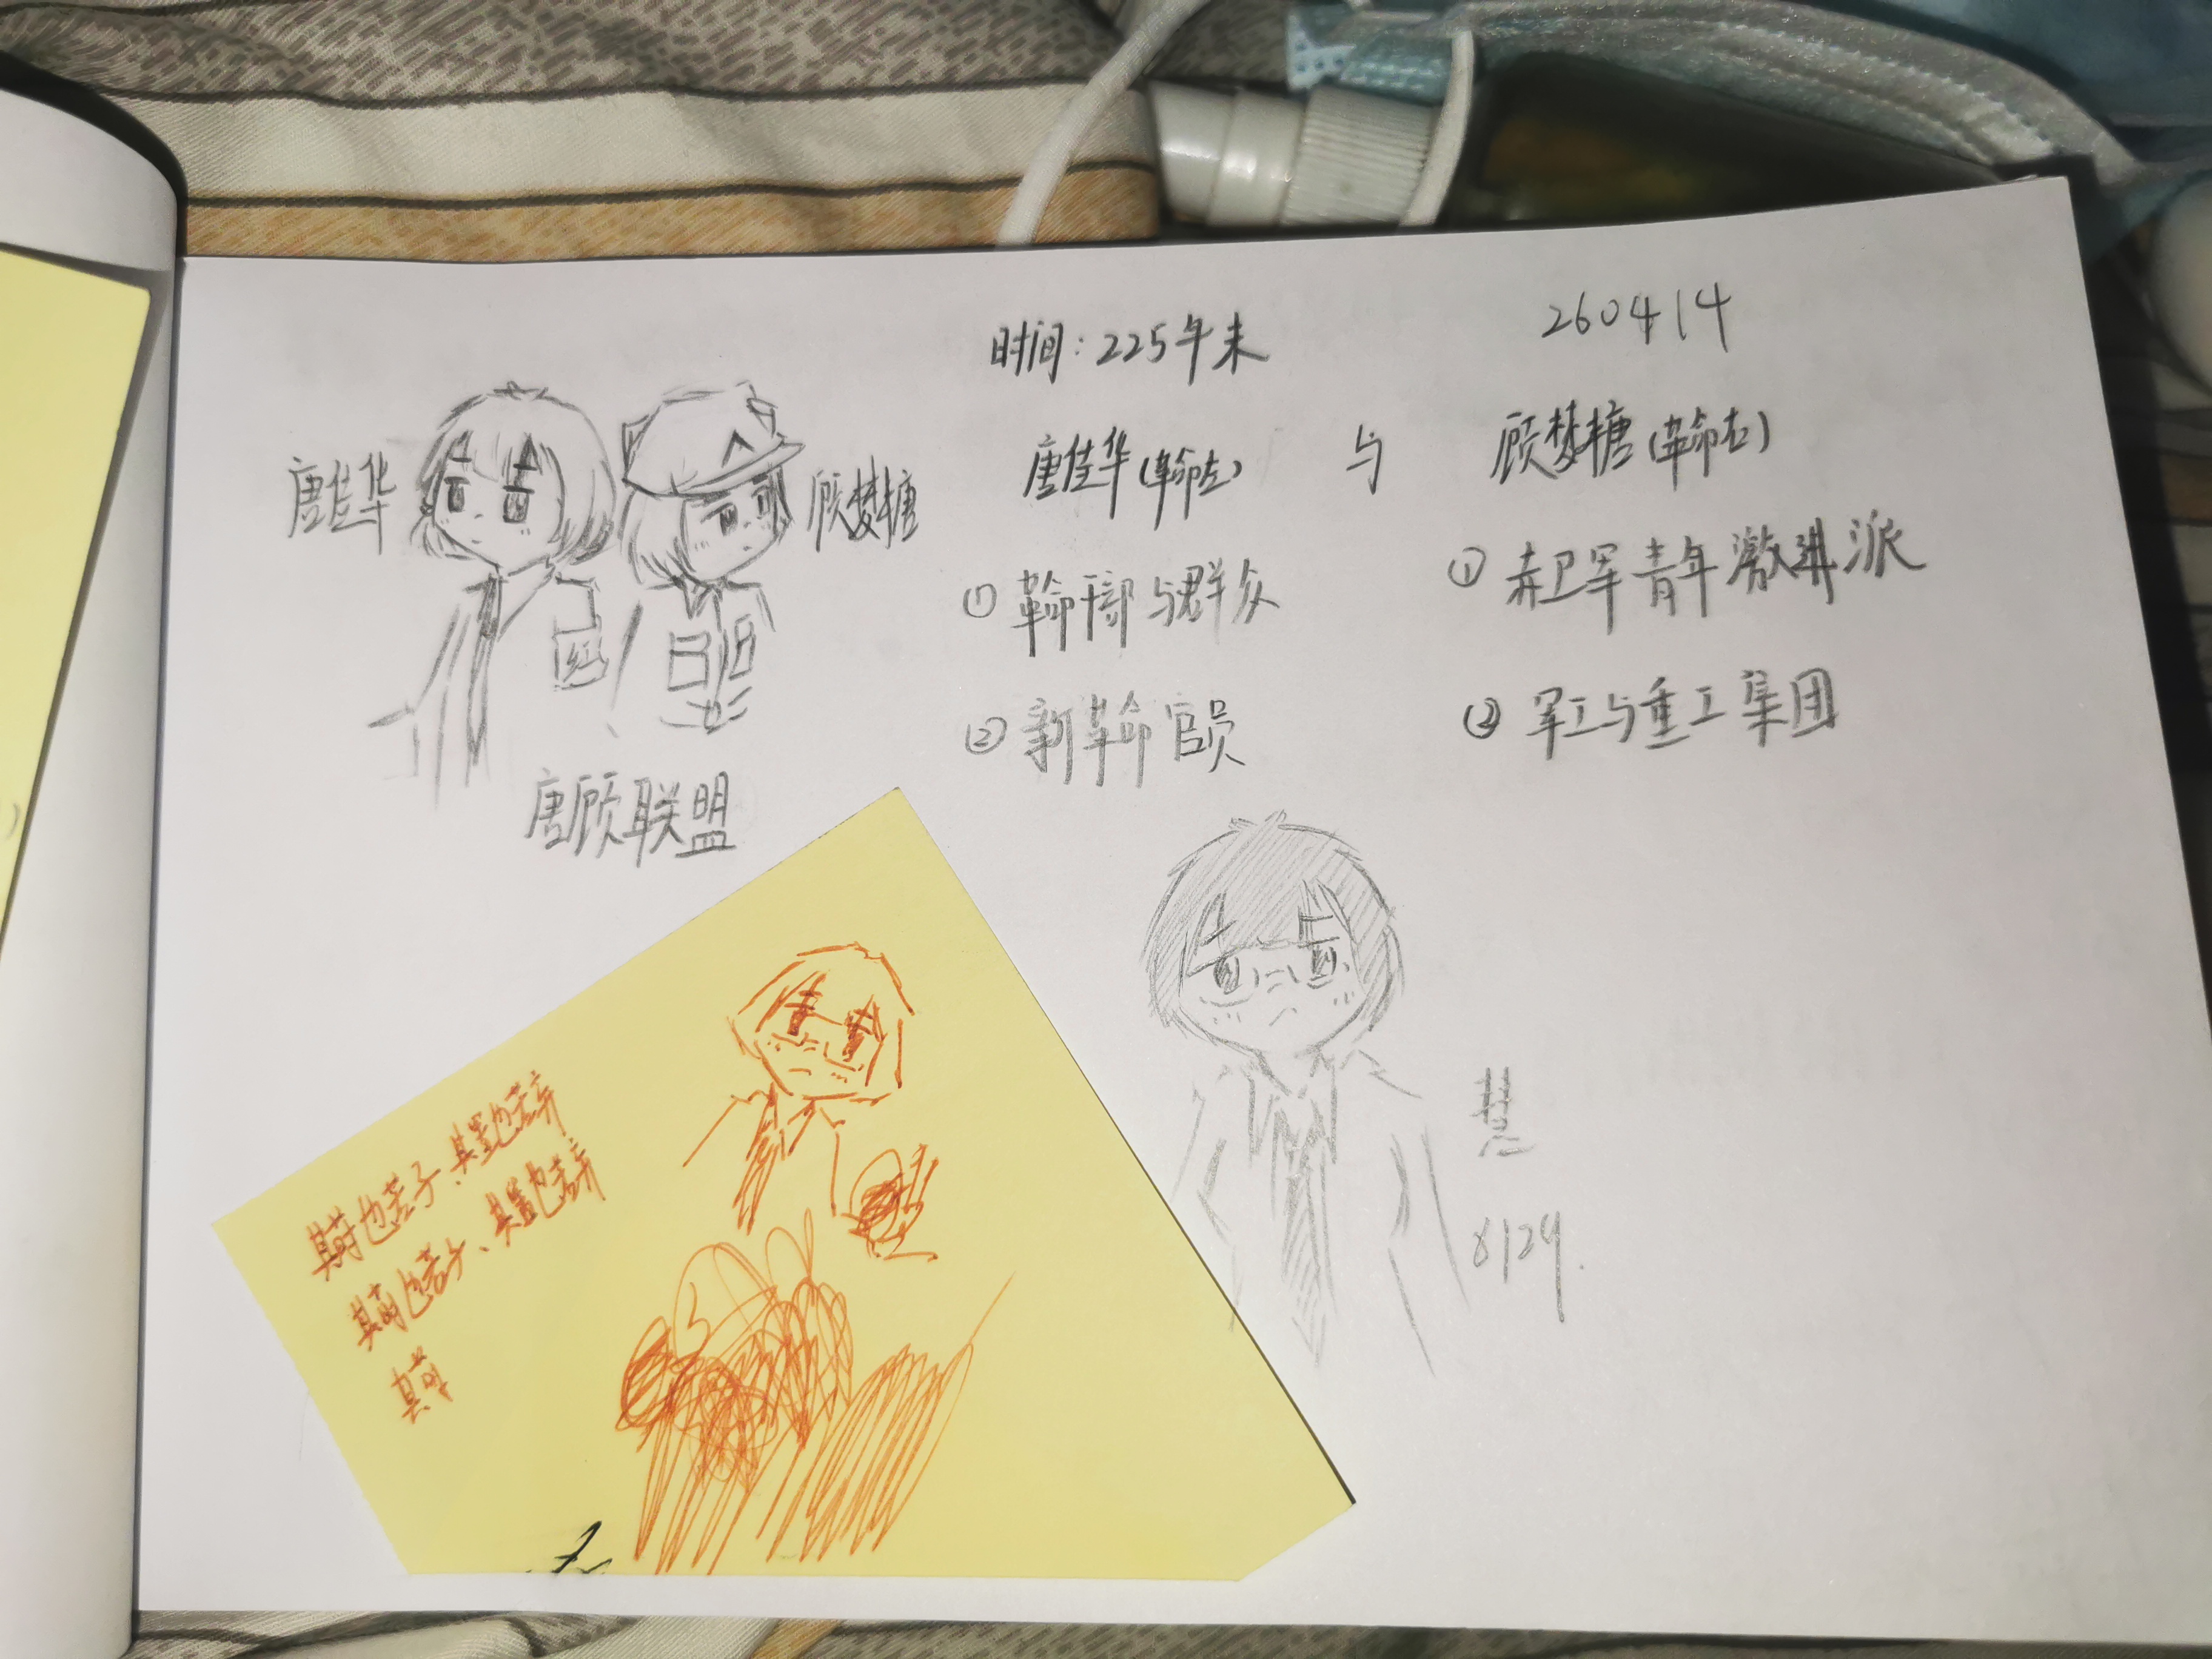 260414
时间:225年末
唐佳华(革命左) 与 顾梦糖(革命右)
① 革命干部与群众
② 新革命官员
① 赤卫军青年激进派
② 军工与重工集团
唐佳华
顾梦糖
红
唐顾联盟
其莳也若子、其置也若弃
其莳也若子、其置也若弃
其莳
慧